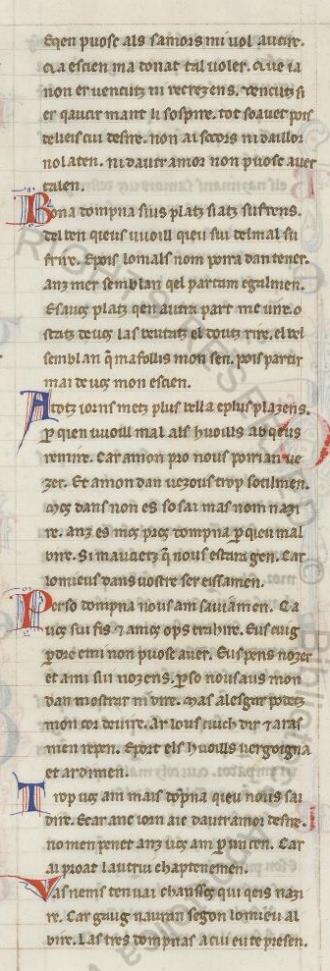 Eqen puosc als samors mi uol aucire.
Ca escien ma donat tal uoler. Que ia
non er uencutz ni recrezens. uencutz si
er qaucir mant li sospire. tot soauet pois
delieis cui desire. non ai secors ni daillor
nol aten. ni dautramor non puosc auer
talen.
Bona dompna sius platz siatz sufrens.
del ben qieus uuoill qieu sui delmal su
frire. Epois lomals nom poira dan tener.
anz mer semblan qel partam egalmen.
Esauos platz qen autra part me uire. o
statz deuos las beutatz el doutz rire. el bel
semblan q̃ mafollis mon sen. pois partir
mai de uos mon escien.
Atotz iorns metz plus bella eplus plazens.
ꝑ qien uuoill mal als huoills ab qeus
remire. Car amon pro nous poirian ue
zer. Et amon dan uezous trop sotilmen.
mos dans non es so sai mas nom nazi
re. anz es mos pros dompna ꝑ qieu mal
bire. Si maucietz q̃ nous estara gen. Car
lomieus dans uostre ser eissamen.
Perso dompna nous am sauiamen. Ca
uos sui fis ⁊ amos ops trahire. Eus cuig
ꝑdre emi non puosc auer. Eus pens nozer
et ami sui nozens. ꝑso nousaus mon
dan mostrar ni dire. mas alesgar podetz
mon cor deuire. Ar lous cuich dir ⁊ aras
mien repen. Eport els huoills uergoigna
et ardimen.
Trop uos am mais dõpna qieu nous sai
dire. Ecar anc iorn aic dautramor desire.
nomen penet anz uos am ꝑ un cen. Car
ai proat lautrui chaptenemen.
Uas nems ten uai chanssos qui qeis nazi
re. Car gaug nauran segon lomieu al
bire. Las tres dompnas acui eu te presen.